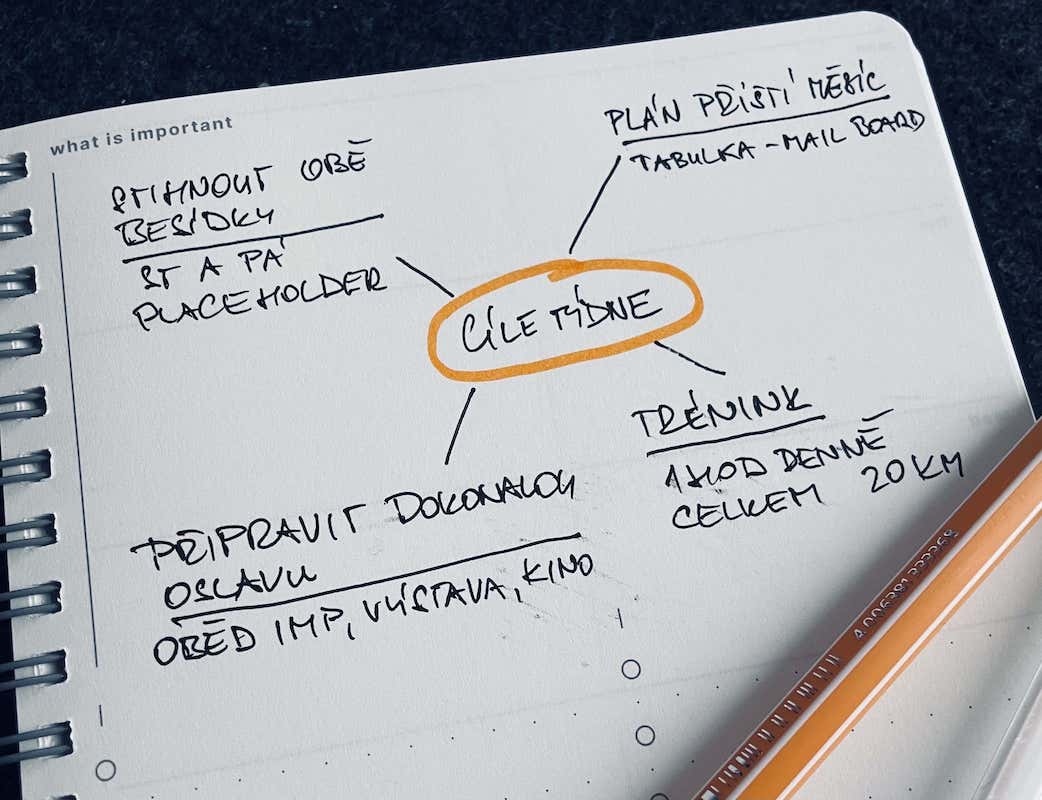 what is important
STIHNOUT OBĚ
BESÍDKY
ST A PÁ
PLACEHOLDER
PLÁN PŘÍŠTÍ MĚSÍC
TABULKA - MAIL BOARD
CÍLE TÝDNE
TRÉNINK
1 HOD DENNĚ
CELKEM 20 KM
PŘIPRAVIT DOKONALOU
OSLAVU
OBĚD IMP, VÝSTAVA, KINO